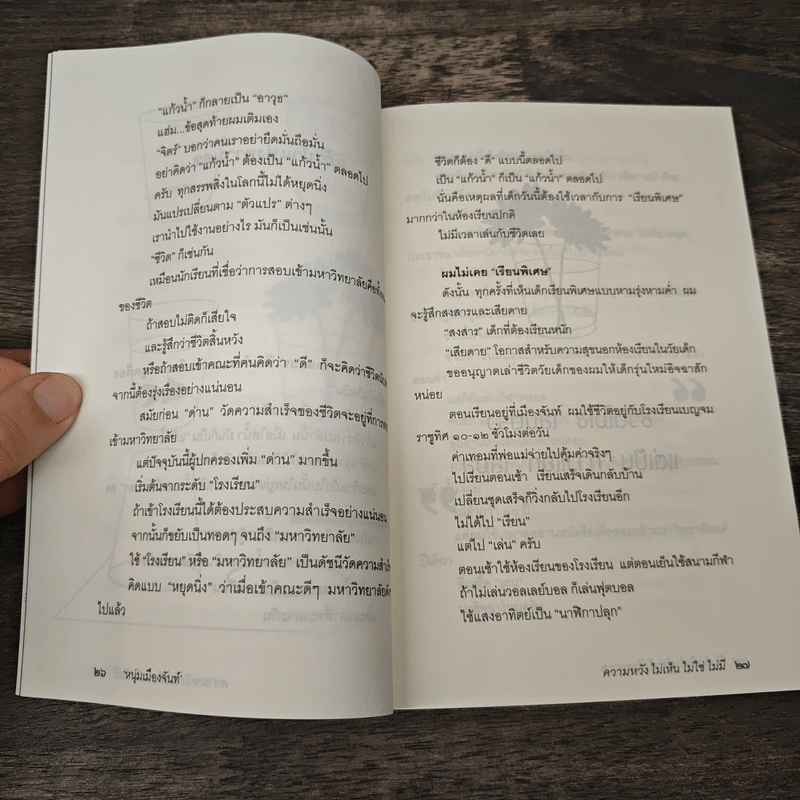 “แก้วน้ำ” ก็กลายเป็น “อาวุธ”
แฮ่ม...ข้อสุดท้ายผมเติมเอง
“จิตร์” บอกว่าคนเราอย่ายึดมั่นถือมั่น
อย่าคิดว่า “แก้วน้ำ” ต้องเป็น “แก้วน้ำ” ตลอดไป
ครับ ทุกสรรพสิ่งในโลกนี้ไม่ได้หยุดนิ่ง
มันแปรเปลี่ยนตาม “ตัวแปร” ต่างๆ
เรานำไปใช้งานอย่างไร มันก็เป็นเช่นนั้น
“ชีวิต” ก็เช่นกัน
เหมือนนักเรียนที่เชื่อว่าการสอบเข้ามหาวิทยาลัยคือ
ของชีวิต
ถ้าสอบไม่ติดก็เสียใจ
และรู้สึกว่าชีวิตสิ้นหวัง
หรือถ้าสอบเข้าคณะที่คนคิดว่า “ดี” ก็จะคิดว่าชีวิต
จากนี้ต้องรุ่งเรืองอย่างแน่นอน
สมัยก่อน “ด่าน” วัดความสำเร็จของชีวิตจะอยู่ที่การ
เข้ามหาวิทยาลัย
แต่ปัจจุบันนี้ผู้ปกครองเพิ่ม “ด่าน” มากขึ้น
เริ่มต้นจากระดับ “โรงเรียน”
ถ้าเข้าโรงเรียนนี้ได้ต้องประสบความสำเร็จอย่างแน่นอน
จากนั้นก็ขยับเป็นทอดๆ จนถึง “มหาวิทยาลัย”
ใช้ “โรงเรียน” หรือ “มหาวิทยาลัย” เป็นดัชนีวัดความสำเร็จ
คิดแบบ “หยุดนิ่ง” ว่าเมื่อเข้าคณะดีๆ มหาวิทยาลัย
ไปแล้ว
๒๖ ‘หนุ่มเมืองจันท์’
ชีวิตก็ต้อง “ดี” แบบนี้ตลอดไป
เป็น “แก้วน้ำ” ก็เป็น “แก้วน้ำ” ตลอดไป
นั่นคือเหตุผลที่เด็กวันนี้ต้องใช้เวลากับการ “เรียนพิเศษ”
มากกว่าในห้องเรียนปกติ
ไม่มีเวลาเล่นกับชีวิตเลย
ผมไม่เคย “เรียนพิเศษ”
ดังนั้น ทุกครั้งที่เห็นเด็กเรียนพิเศษแบบหามรุ่งหามค่ำ ผม
จะรู้สึกสงสารและเสียดาย
“สงสาร” เด็กที่ต้องเรียนหนัก
“เสียดาย” โอกาสสำหรับความสุขนอกห้องเรียนในวัยเด็ก
ขออนุญาตเล่าชีวิตวัยเด็กของผมให้เด็กรุ่นใหม่อิจฉาสัก
หน่อย
ตอนเรียนอยู่ที่เมืองจันท์ ผมใช้ชีวิตอยู่กับโรงเรียนเบญจม
ราชูทิศ ๑๐-๑๒ ชั่วโมงต่อวัน
ค่าเทอมที่พ่อแม่จ่ายไปคุ้มค่าจริงๆ
ไปเรียนตอนเช้า เรียนเสร็จเดินกลับบ้าน
เปลี่ยนชุดเสร็จก็วิ่งกลับไปโรงเรียนอีก
ไม่ได้ไป “เรียน”
แต่ไป “เล่น” ครับ
ตอนเช้าใช้ห้องเรียนของโรงเรียน แต่ตอนเย็นใช้สนามกีฬา
ถ้าไม่เล่นวอลเลย์บอล ก็เล่นฟุตบอล
ใช้แสงอาทิตย์เป็น “นาฬิกาปลุก”
ความหวัง ไม่เห็น ไม่ใช่ ไม่มี ๒๗